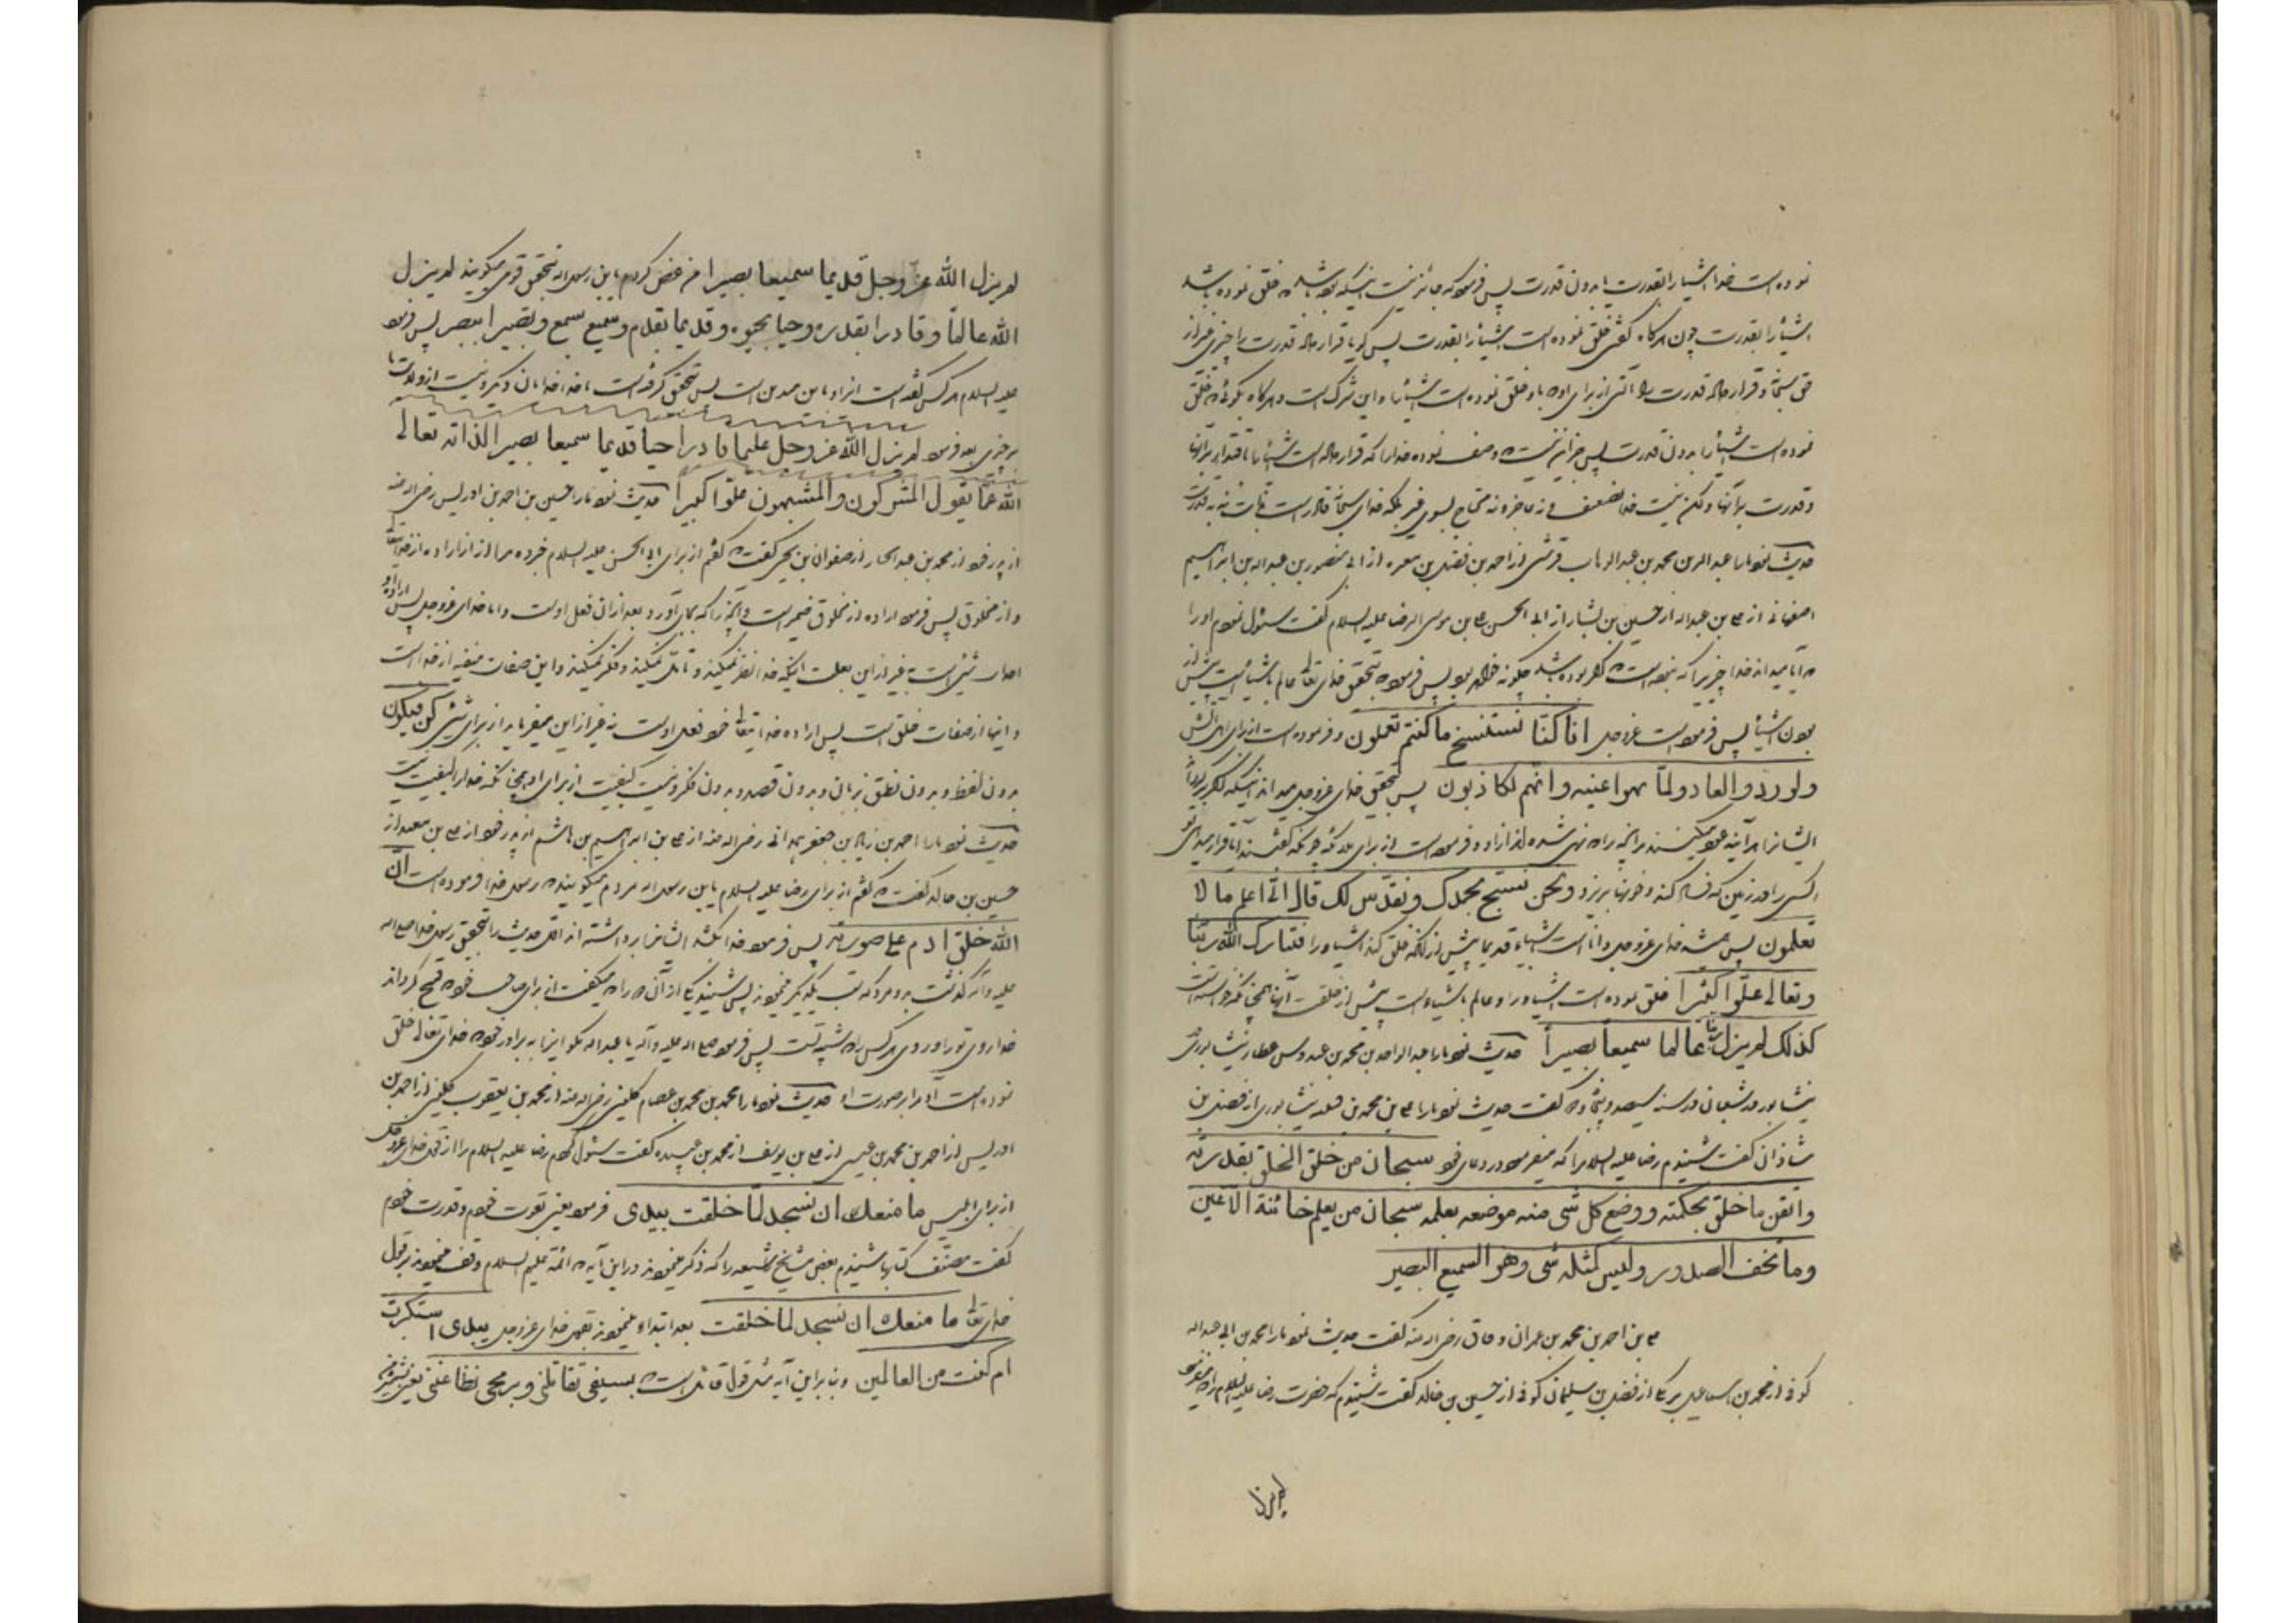 نموده است خدا اشیاء را بقدرت یا بدون قدرت پس فرمود که جائز نیست اینکه بوده باشد که خلق نموده باشد
اشیاء را بقدرت چون هرگاه گفتی خلق نموده است اشیاء را بقدرت پس گویا قرار داده قدرت را چیزی غیر از
حق و قرار داده قدرت را آلتی از برای او که باو خلق نموده است اشیاء را و این شرک است و هرگاه بگوئی که خلق
نموده است اشیاء را بدون قدرت پس جز این نیست که وصف نموده خدا را که قرار داده است اشیاء را باقتدار بر آنها
و قدرت بر آنها و لکن نیست خدا ضعیف و نه عاجز و نه محتاج بسوی غیر بلکه خدای سبحانه قادر است بذات نه به قدرت
حدیث نمود ما را عبد الله بن محمد بن عبد الوهاب قرشی از احمد بن فضل بن مغیره از ابی منصور بن عبد الله بن ابراهیم
اصفهانی از علی بن عبد الله از حسین بن بشار از ابی الحسن علی بن موسی الرضا علیه السلام گفت سئوال نمودم او را
که آیا میداند خدا چیزی را که نبوده است که اگر بوده باشد چگونه خواهد بود پس فرمود که بتحقیق خدای تعالی عالم باشیاء است پیش از
بودن اشیاء پس فرموده است عزوجل انا کنّا نستنسخ ما کنتم تعملون و فرموده است از برای اهل آتش
ولو ردّوا لعادوا لمّا نهوا عنه وانّهم لکاذبون پس بتحقیق خدای عزوجل میداند اینکه اگر برگرداند
ایشانرا هر آینه عود میکنند بر آنچه را که نهی شده اند از او و فرموده است از برای ملائکه چونکه گفتند آیا قرار میدهی تو
کسی را در زمین که فساد کند و خونها بریزد ونحن نسبّح بحمدک ونقدّس لک قال انّی اعلم ما لا
تعلمون پس همیشه خدای عزوجل دانا است اشیاء قدیما پیش از آنکه خلق کند اشیاء را فتبارک الله ربّنا
وتعالی علوّا کبیرا خلق نموده است اشیاء را و عالم باشیاء است پیش از خلقت آنها همچنانکه خواسته است
کذلک لم یزل ربنا عالما سمیعاً بصیراً حدیث نمود ما را عبد الواحد بن محمد بن عبدوس عطار نیشابوری
نیشابور در شعبان در سنه سیصد و پنجاه و دو گفت حدیث نمود ما را علی بن محمد بن قتیبه نیشابوری از فضل بن
شاذان گفت شنیدم رضا علیه السلام را که میفرمود در دعای خود سبحان من خلق الخلق بقدرته
واتقن ما خلق بحکمته ووضع کل شی منه موضعه بعلمه سبحان من یعلم خائنة الاعین
وما تخف الصدور ولیس کمثله شی وهو السمیع البصیر
علی بن احمد بن محمد بن عمران دقاق رضی الله عنه گفت حدیث نمود ما را محمد بن ابی عبد الله
کوفی از محمد بن اسماعیل برمکی از فضل بن سلیمان کوفی از حسین بن خالد گفت شنیدم که حضرت رضا علیه السلام را که میفرمود
لم یزل
لم یزل الله عزّ وجلّ قدیما سمیعا بصیرا من عرض کردم یابن رسول الله بتحقیق قومی میگویند لم یزل
الله عالماً وقادرا بقدرة وحیا بحیوه وقدیما بقدم وسمیع بسمع وبصیرا ببصر پس فرمود
علیه السلام هر کس گفته است این را و باین متدین است پس بتحقیق گرفته است با خدا خدایان دیگر و نیست از ولایت ما
بر چیزی بعد فرمود لم یزل الله عز وجل علیما قادرا حیا قدیما سمیعا بصیرا لذاته تعالی
الله عمّا یقول المشرکون والمشبهون علوّا کبیراً حدیث نمود ما را حسین بن احمد بن ادریس رضی الله عنه
از پدر خود از محمد بن عبد الجبار از صفوان بن یحیی گفت که گفتم از برای ابی الحسن علیه السلام خبر ده مرا از اراده از خدا تعالی
و از مخلوق پس فرمود اراده از مخلوق ضمیر است و آنچه را که بجا می آورد بعد از آن فعل اوست و اما خدای عزوجل پس اراده او
احداث شیئی است نه غیر از این بعلت اینکه خدا نظر نمیکند و تأمل نمیکند و فکر نمیکند و این صفات منفیه از خدا است
و اینها از صفات خلق است پس اراده خدا تعالی خود فعل اوست نه غیر از این میفرماید از برای شیئی کن فیکون
بدون لفظ و بدون نطق بزبان و بدون قصد و بدون فکر و نیست کیفیت از برای او همچنانکه خدا را کیفیت نیست
حدیث نمود ما را احمد بن زیاد بن جعفر همدانی رضی الله عنه از علی بن ابراهیم بن هاشم از پدر خود از علی بن معبد از
حسین بن خالد گفت که گفتم از برای رضا علیه السلام یابن رسول الله مردم میگویند که رسول خدا فرموده است انّ
الله خلق ادم علی صورته پس فرمود خدا بکشد ایشانرا برداشته اند اول حدیث را بتحقیق رسول خدا صلی الله
علیه و آله گذشت بدو مرد که سب یکدیگر مینمودند پس شنید یکی از آن دو را که میگفت از برای صاحب خود که قبیح گرداند
خدا روی تو را و روی هر کس را که شبیه تست پس فرمود صلی الله علیه وآله یا عبد الله مگو اینرا به برادر خود که خدای تعالی خلق
نموده است آدم را بر صورت او حدیث نمود ما را محمد بن محمد بن عصام کلینی رضی الله عنه از محمد بن یعقوب کلینی از احمد بن
ادریس از احمد بن محمد بن عیسی از علی بن یوسف از محمد بن عبیده گفت سئوال کردم رضا علیه السلام را از قول خدای عزوجل
از برای ابلیس ما منعک ان تسجد لمّا خلقت بیدی فرمود یعنی بقوت خودم و قدرت خودم
گفت مصنّف کتاب شنیدم بعض مشایخ شیعه را که ذکر مینمودند در این آیه که ائمّه علیهم السلام وقف مینمودند بر قول
خدای تعالی ما منعک ان تسجد لما خلقت بعد ابتداء مینمودند بقول خدای عزوجل بیدی استکبرت
ام کنت من العالمین و بنا بر این آیه مثل قول قائل است که بسیفی تقاتلنی وبرمحی تطاعنی یعنی بشمشیر من